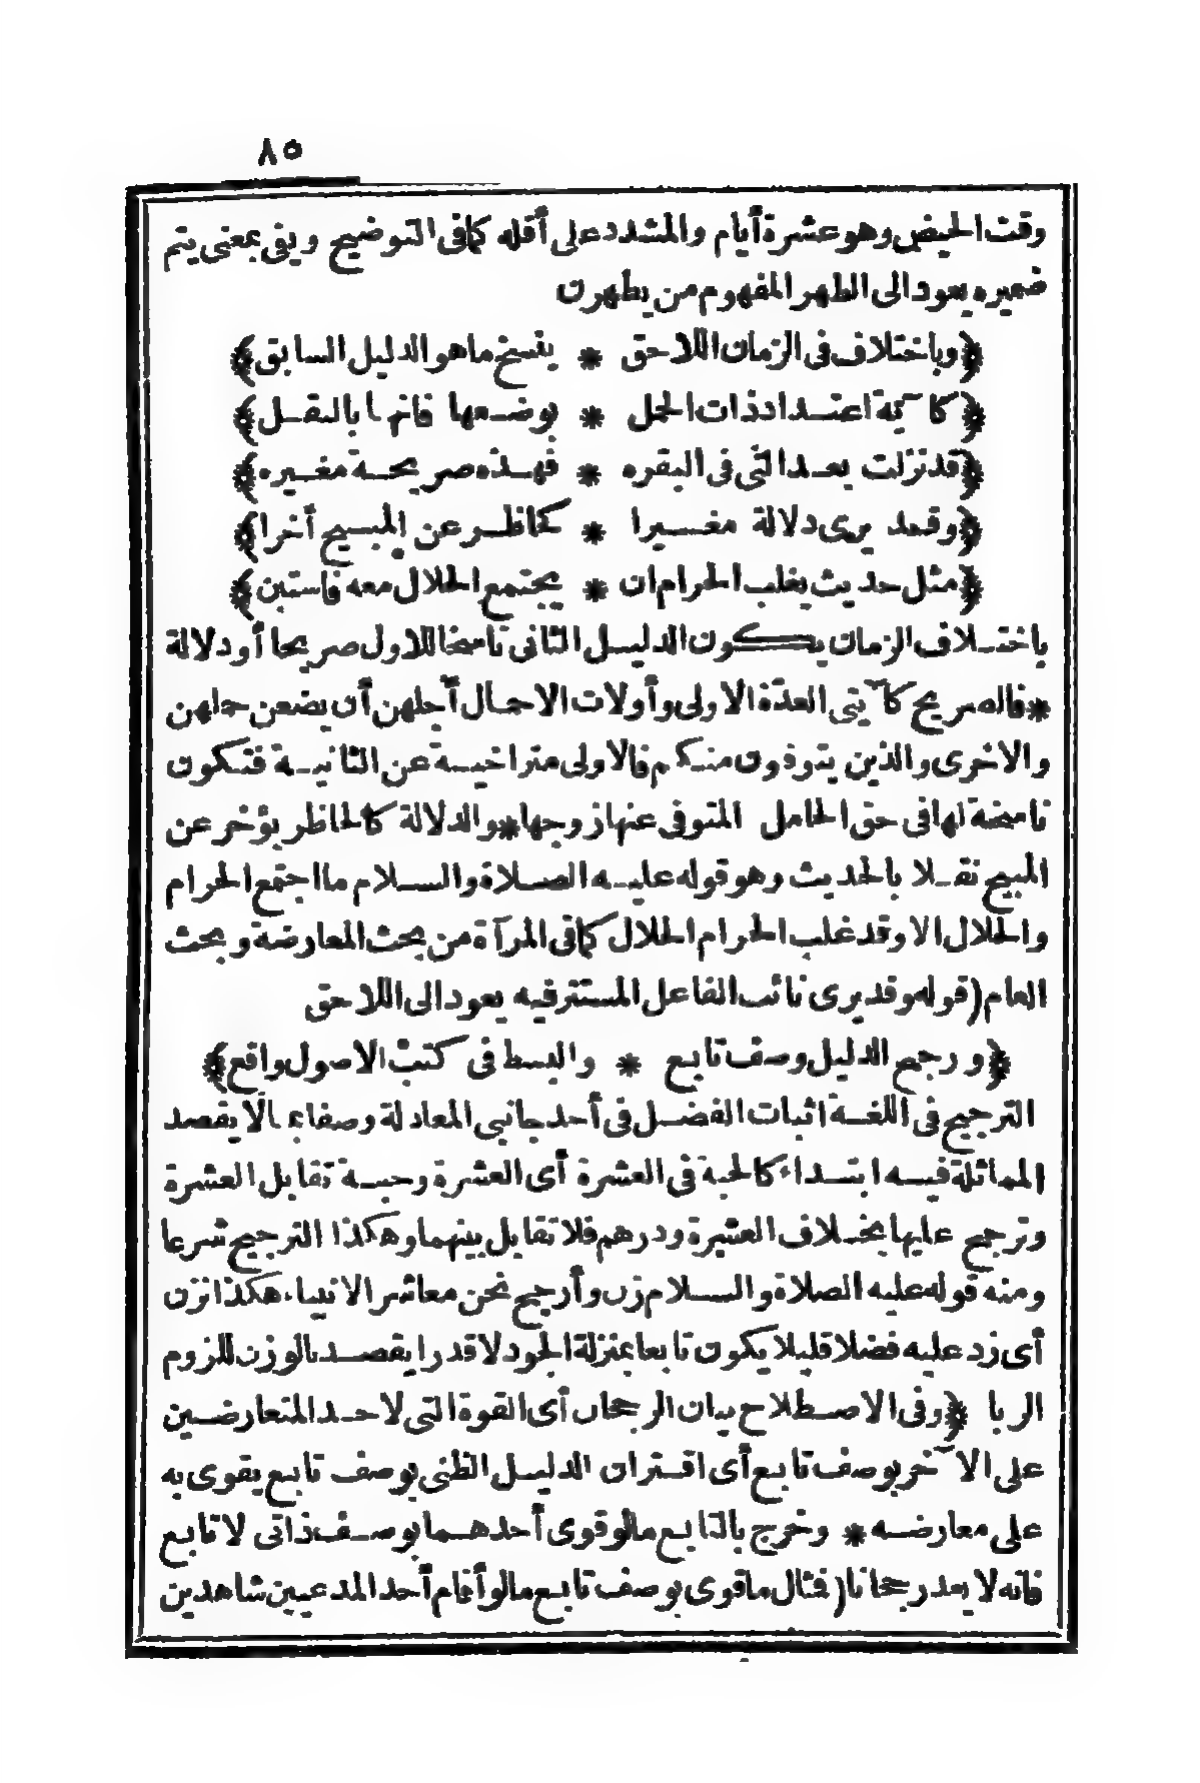 ٨٥
وقت الحيض وهو عشرة أيام والمشدد على أقله كما في التوضيح ويفي بمعنى يتم
ضميره يعود الى الطهر المفهوم من يطهرن
﴿وباختلاف في الزمان اللاحق * ينسخ ما هو الدليل السابق﴾
﴿كآية اعتداد ذات الحمل * بوضعها فانها بالنقل﴾
﴿قد نزلت بعد التى فى البقره * فهذه صريحة مغيره﴾
﴿وقد يرى دلالة مغيرا * كحاظر عن المبيح أخرا﴾
﴿مثل حديث يغلب الحرام ان * يجتمع الحلال معه فاستبن﴾
باختلاف الزمان يكون الدليل الثانى ناسخا للاول صريحا أو دلالة
* فالصريح كآيتى العدّة الاولى وأولات الاحمال أجلهن أن يضعن حملهن
والاخرى والذين يتوفون منكم فالاولى متراخية عن الثانية فتكون
ناسخة لها فى حق الحامل المتوفى عنها زوجها * والدلالة كالحاظر يؤخر عن
المبيح نقلا بالحديث وهو قوله عليه الصلاة والسلام ما اجتمع الحرام
والحلال الا وقد غلب الحرام الحلال كما فى المرآة من بحث المعارضة وبحث
العام (قوله وقد يرى نائب الفاعل المستتر فيه يعود الى اللاحق
﴿ورجح الدليل وصف تابع * والبسط فى كتب الاصول واقع﴾
الترجيح فى اللغة اثبات الفضل فى أحد جانبى المعادلة وصفا بما لا يقصد
المماثلة فيه ابتداء كالحبة فى العشرة أى العشرة وحبة تقابل العشرة
وترجح عليها بخلاف العشرة ودرهم فلا تقابل بينهما وهكذا الترجيح شرعا
ومنه قوله عليه الصلاة والسلام زن وأرجح نحن معاشر الانبياء هكذا نزن
أى زد عليه فضلا قليلا يكون تابعا بمنزلة الجود لا قدرا يقصد بالوزن للزوم
الربا ﴿وفى الاصطلاح بيان الرجحان أى القوة التى لاحد المتعارضين
على الآخر بوصف تابع أى اقتران الدليل الظنى بوصف تابع يقوى به
على معارضه * وخرج بالتابع ما لو قوى أحدهما بوصف ذاتى لا تابع
فانه لا يعد رجحانا (فمثال ما قوى بوصف تابع ما لو أقام أحد المدعيين شاهدين